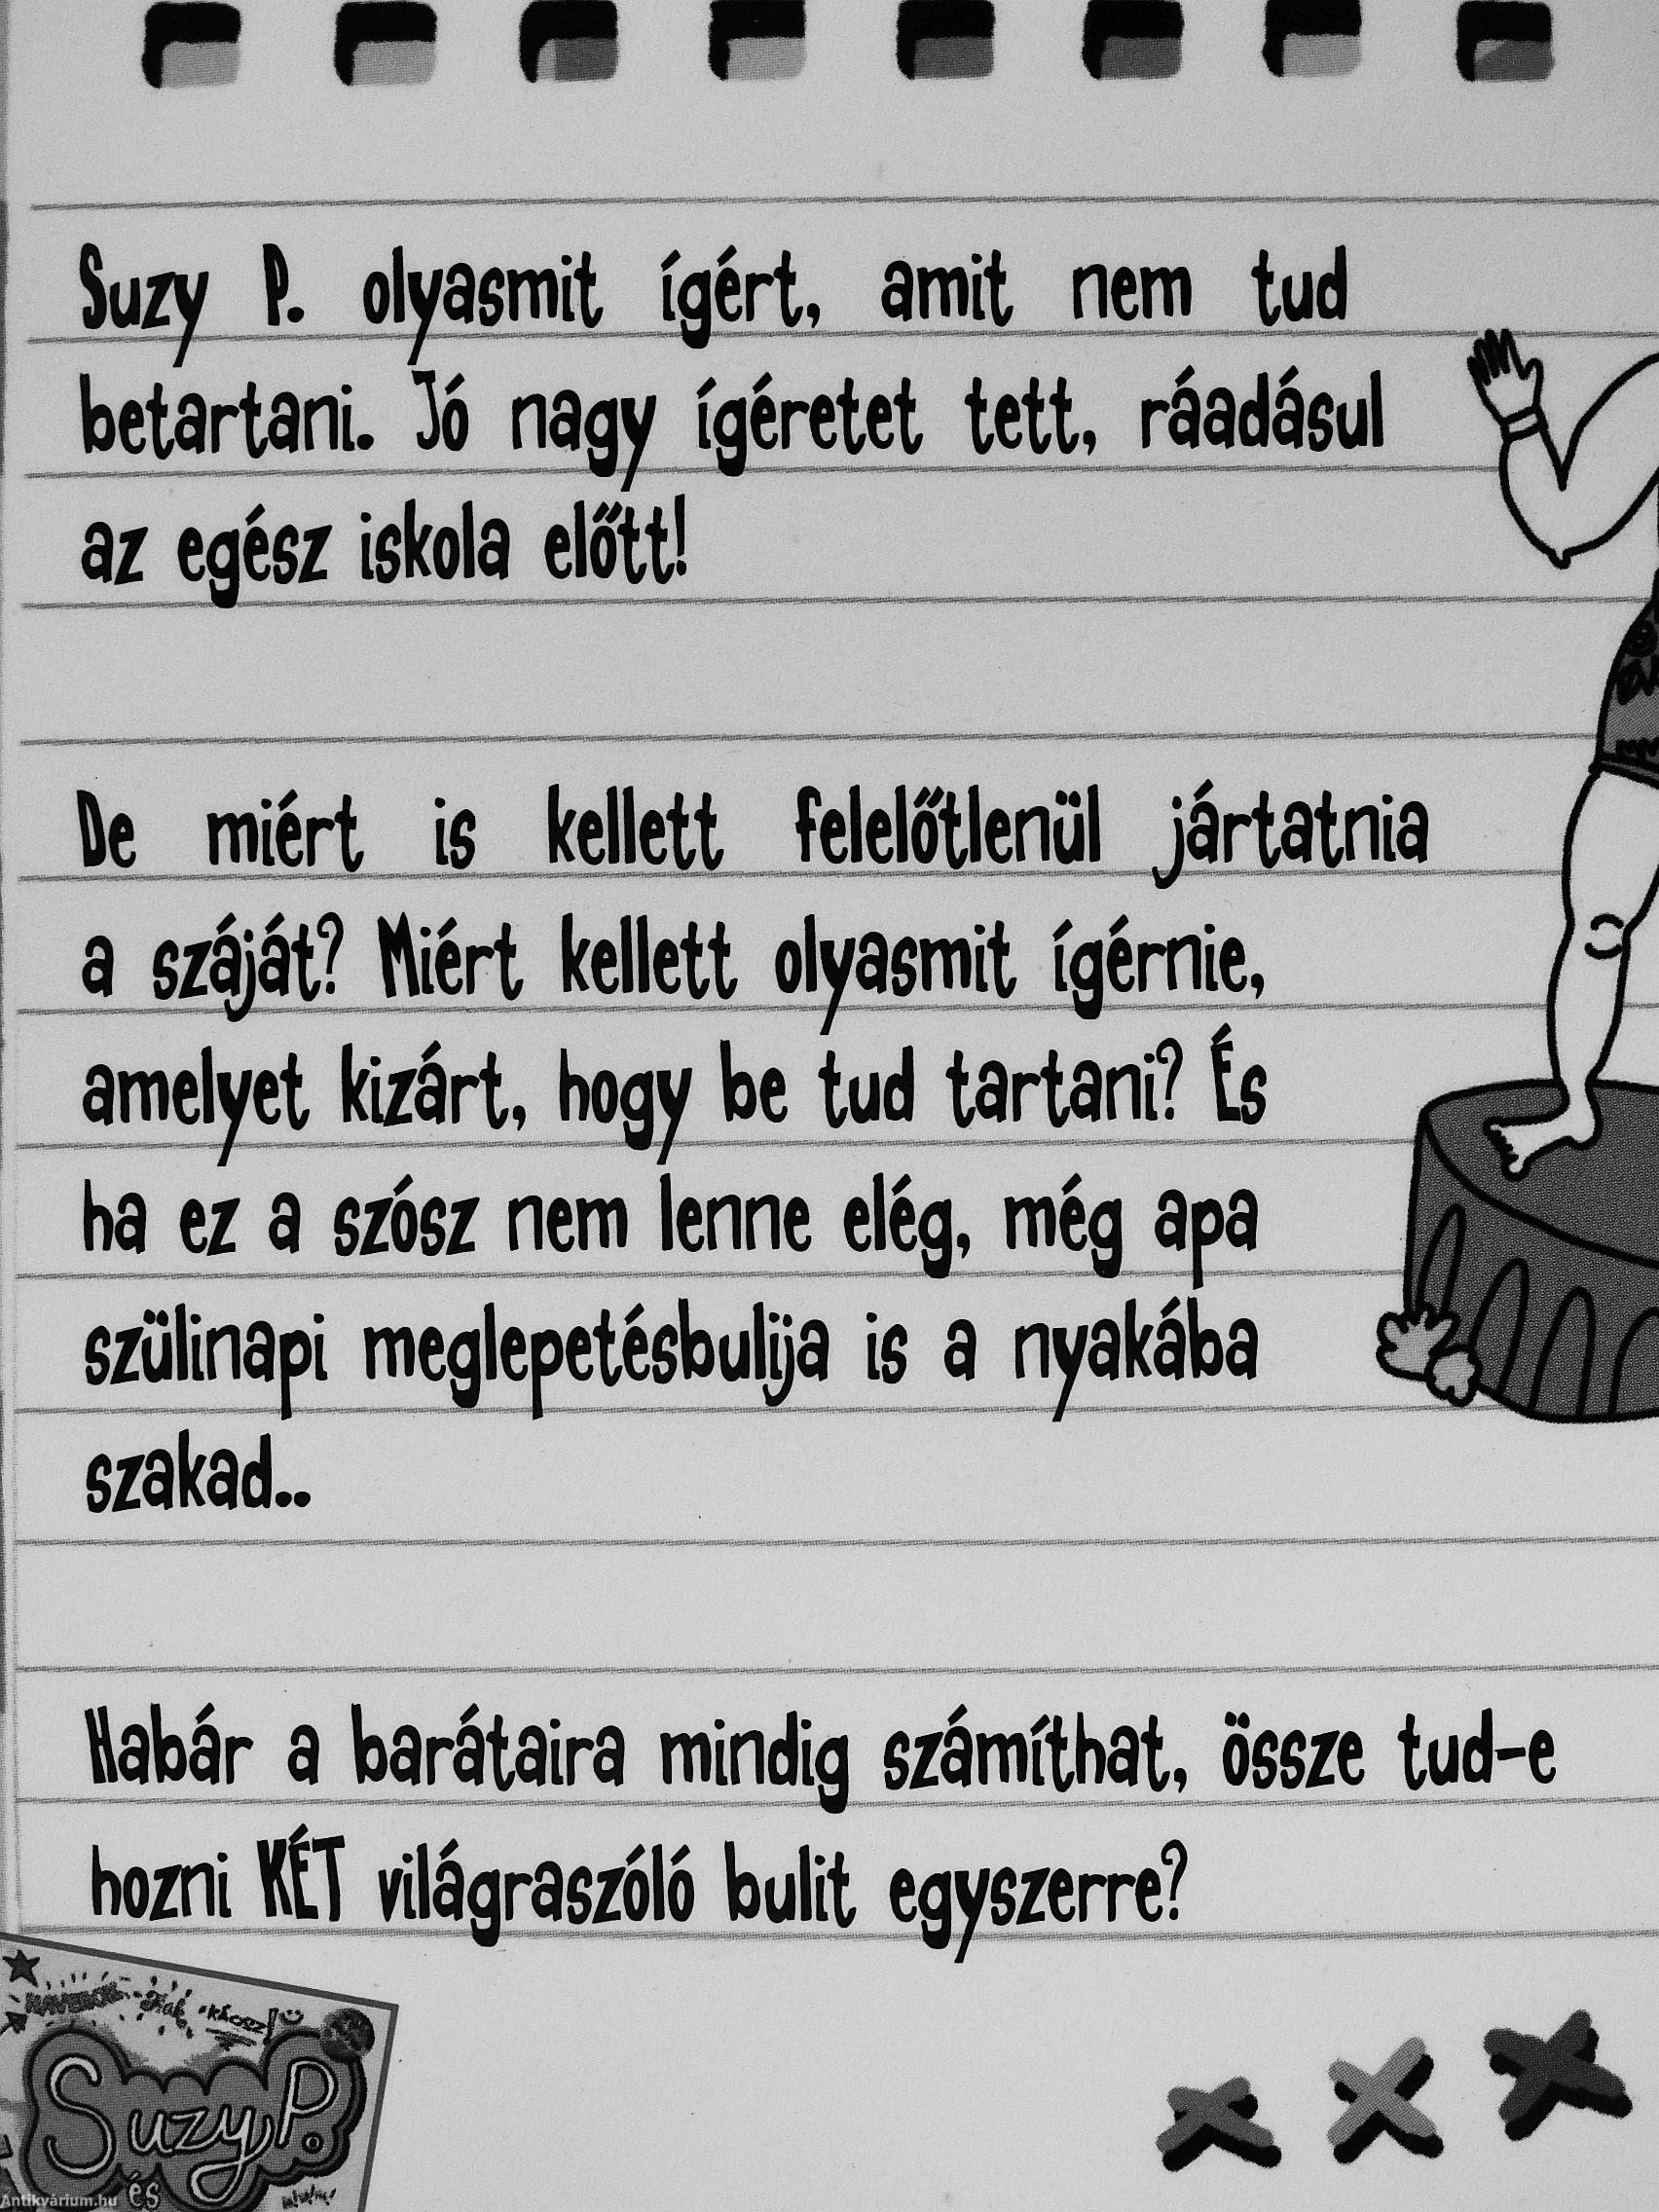 Suzy P. olyasmit ígért, amit nem tud
betartani. Jó nagy ígéretet tett, ráadásul
az egész iskola előtt!
De miért is kellett felelőtlenül jártatnia
a száját? Miért kellett olyasmit ígérnie,
amelyet kizárt, hogy be tud tartani? És
ha ez a szósz nem lenne elég, még apa
szülinapi meglepetésbulija is a nyakába
szakad..
Habár a barátaira mindig számíthat, össze tud-e
hozni KÉT világraszóló bulit egyszerre?
káosz!
Suzy P.
és
Antikvárium.hu